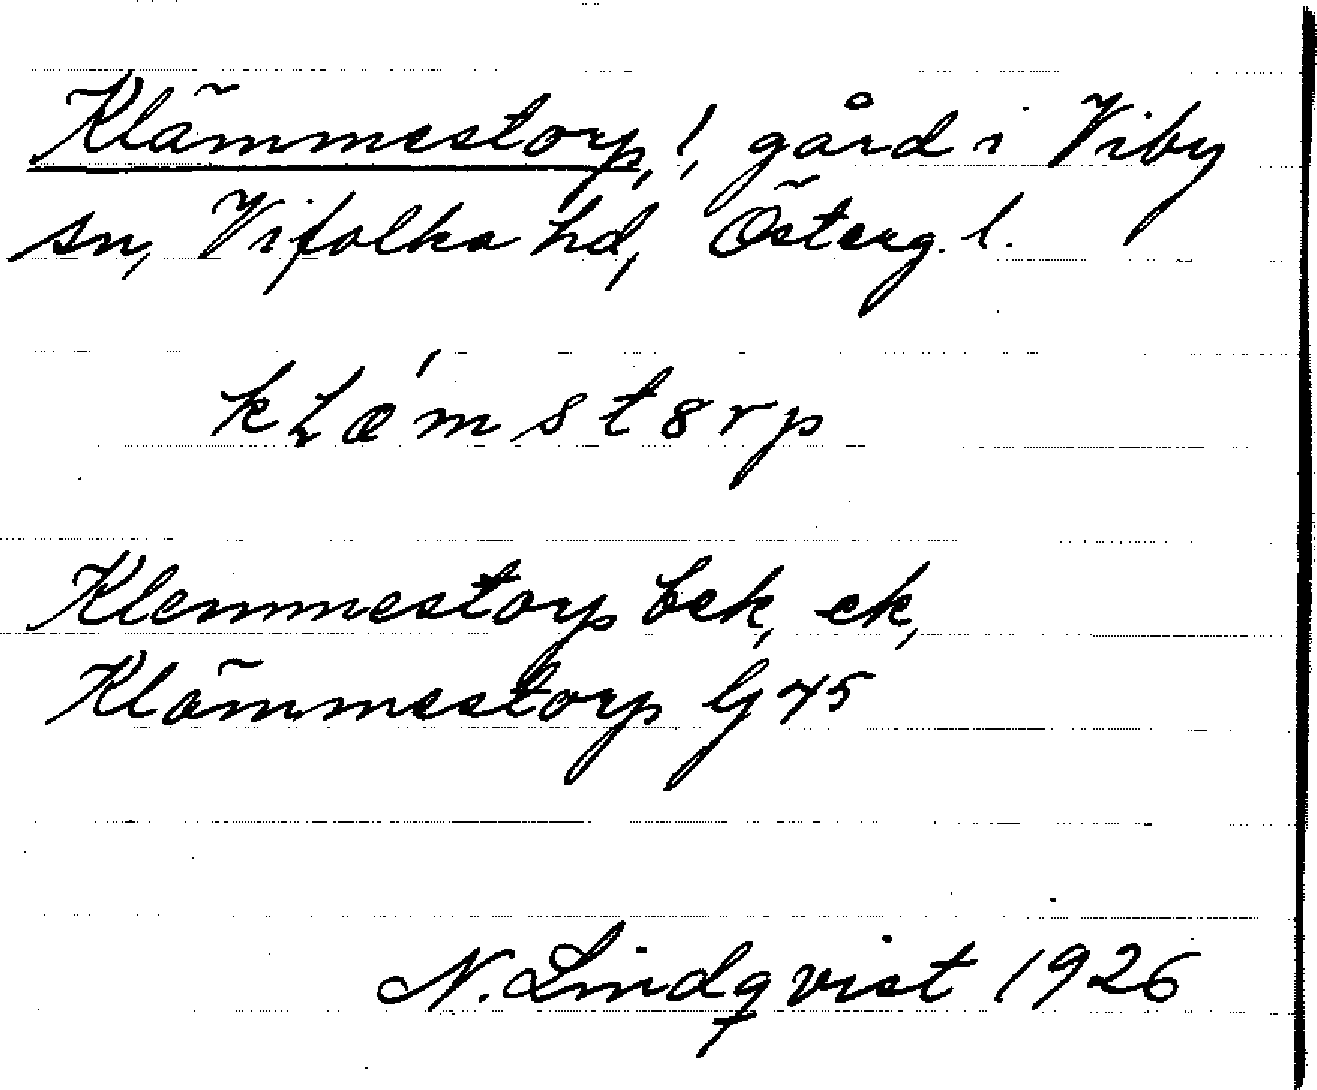 Klämmestorp, !, gård i Viby
sn, Vifolka hd, Österg. l.
kLæ´mst8rp
Klemmestorp bek, ek,
Klämmestorp Gj 45
N. Lindqvist 1926